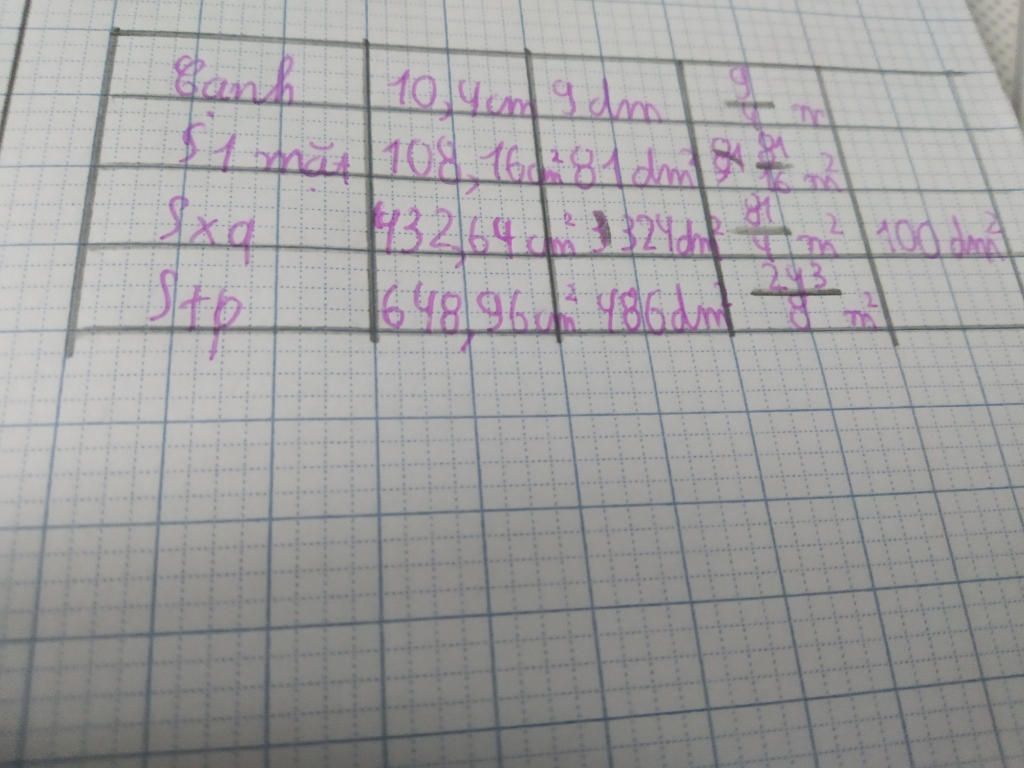 Cạnh 10,4cm 9dm 9/4 m
S 1 mặt 108,16cm² 81dm² 81/16 m²
Sxq 432,64cm² 324dm² 81/4 m² 100dm²
Stp 648,96cm² 486dm² 243/8 m²